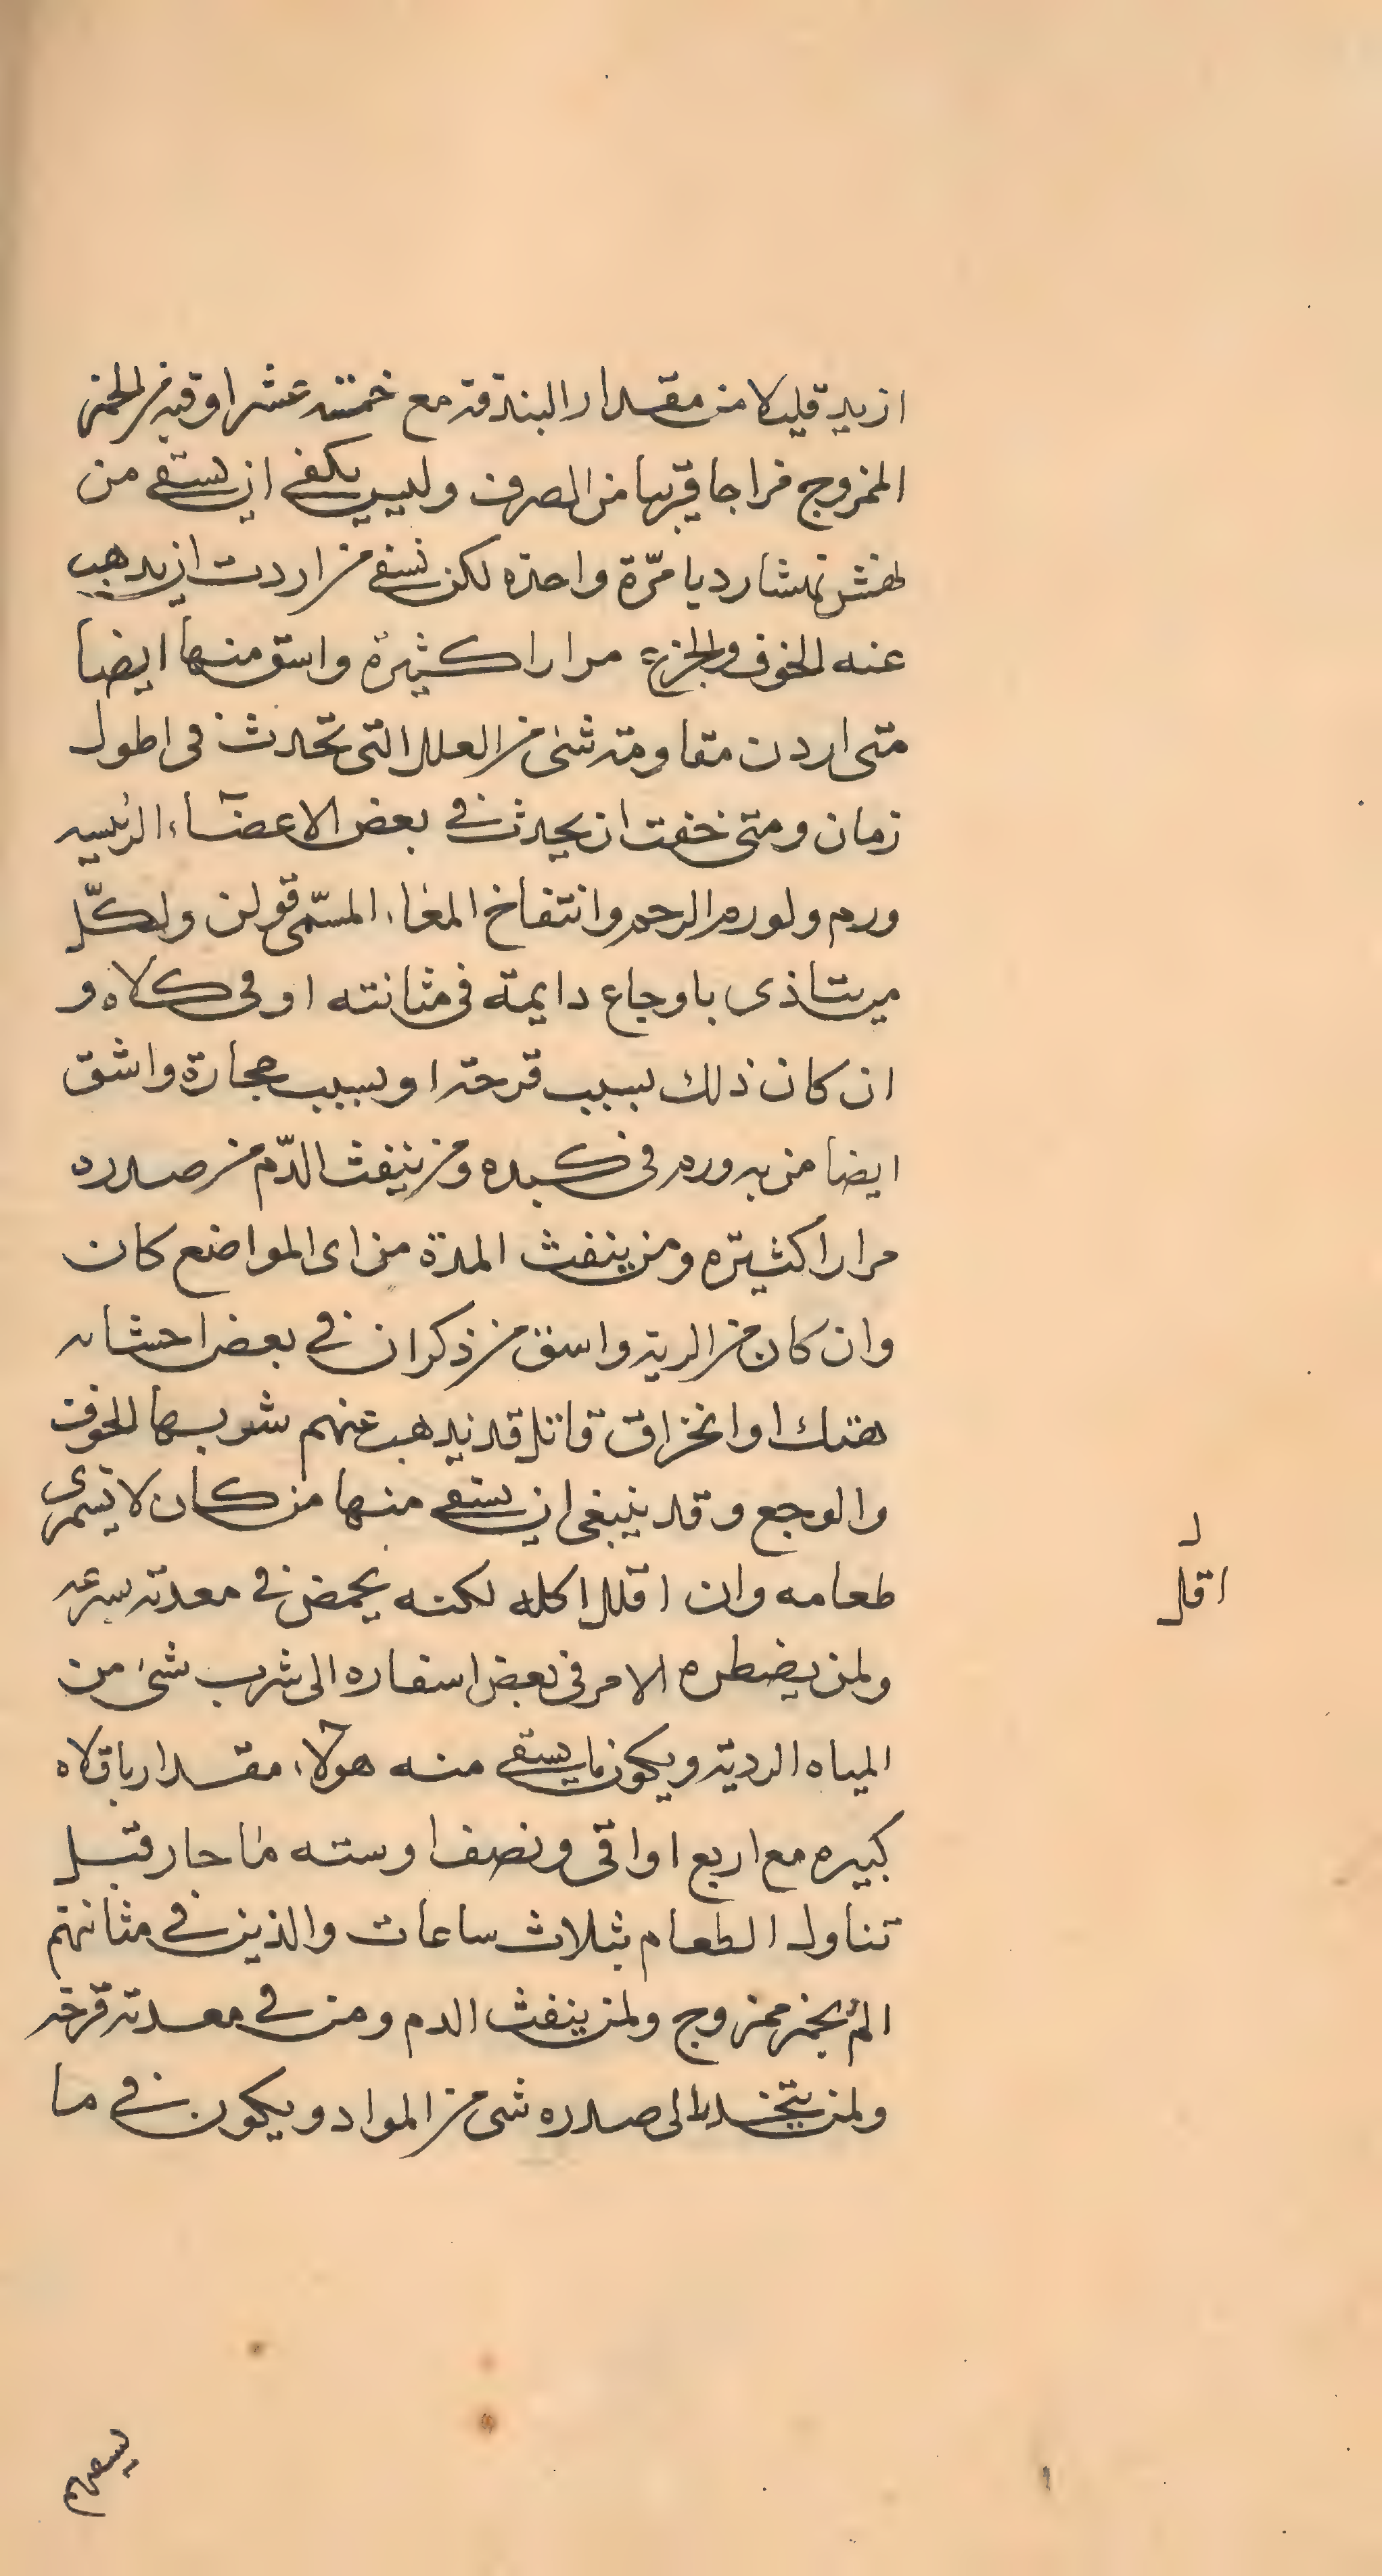 ازيد قليلا من مقدار البندقة مع خمسة عشر اوقيه من الخمر
الممزوج مزاجا قريبا من الصرف وليس يكفى ان يسقى من
نهشارديا مرّة واحدة لكن تسقى من اردت ان يذهب
عنه الخوف والجزع مرارا كثيرة واسق منها ايضا
متى اردت مقاومة شئ من العلل التى تحدث فى اطول
زمان ومتى خفت ان يحدث فى بعض الاعضاء الرئيسيه
ورم ولورم الرحم وانتفاخ المعاء المسمّى قولن ولكلّ
من يتاذى باوجاع دايمة فى مثانته او فى كلاه و
ان كان ذلك بسبب قرحة او بسبب حجارة واشق
ايضا من به ورم فى كبده ومن ينفث الدّم من صدره
مرارا كثيره ومن ينفث المدة من اى المواضع كان
وان كان من الرية واسق من ذكر ان فى بعض احشائه
هتك او انخراق قاتل قد يذهب عنهم شربها الخوف
والوجع وقد ينبغى ان يسقى منها من كان لا يستمرى
طعامه وان اقلل اكله لكنه يحمض فى معدته بسرعه
ولمن يضطره الامر فى بعض اسفاره الى شرب شئ من
المياه الردية ويكون ما يسقى منه هولاء مقدار باقلاه
كبيره مع اربع اواقى ونصف او سته ماء حار قبل
تناول الطعام بثلاث ساعات والذين فى مثانتهم
الم بخمر ممزوج ولمن ينفث الدم ومن فى معدته قرحه
ولمن يتخدر الى صدره شى من المواد ويكون فى ما
ل
اقل
يسقيهم